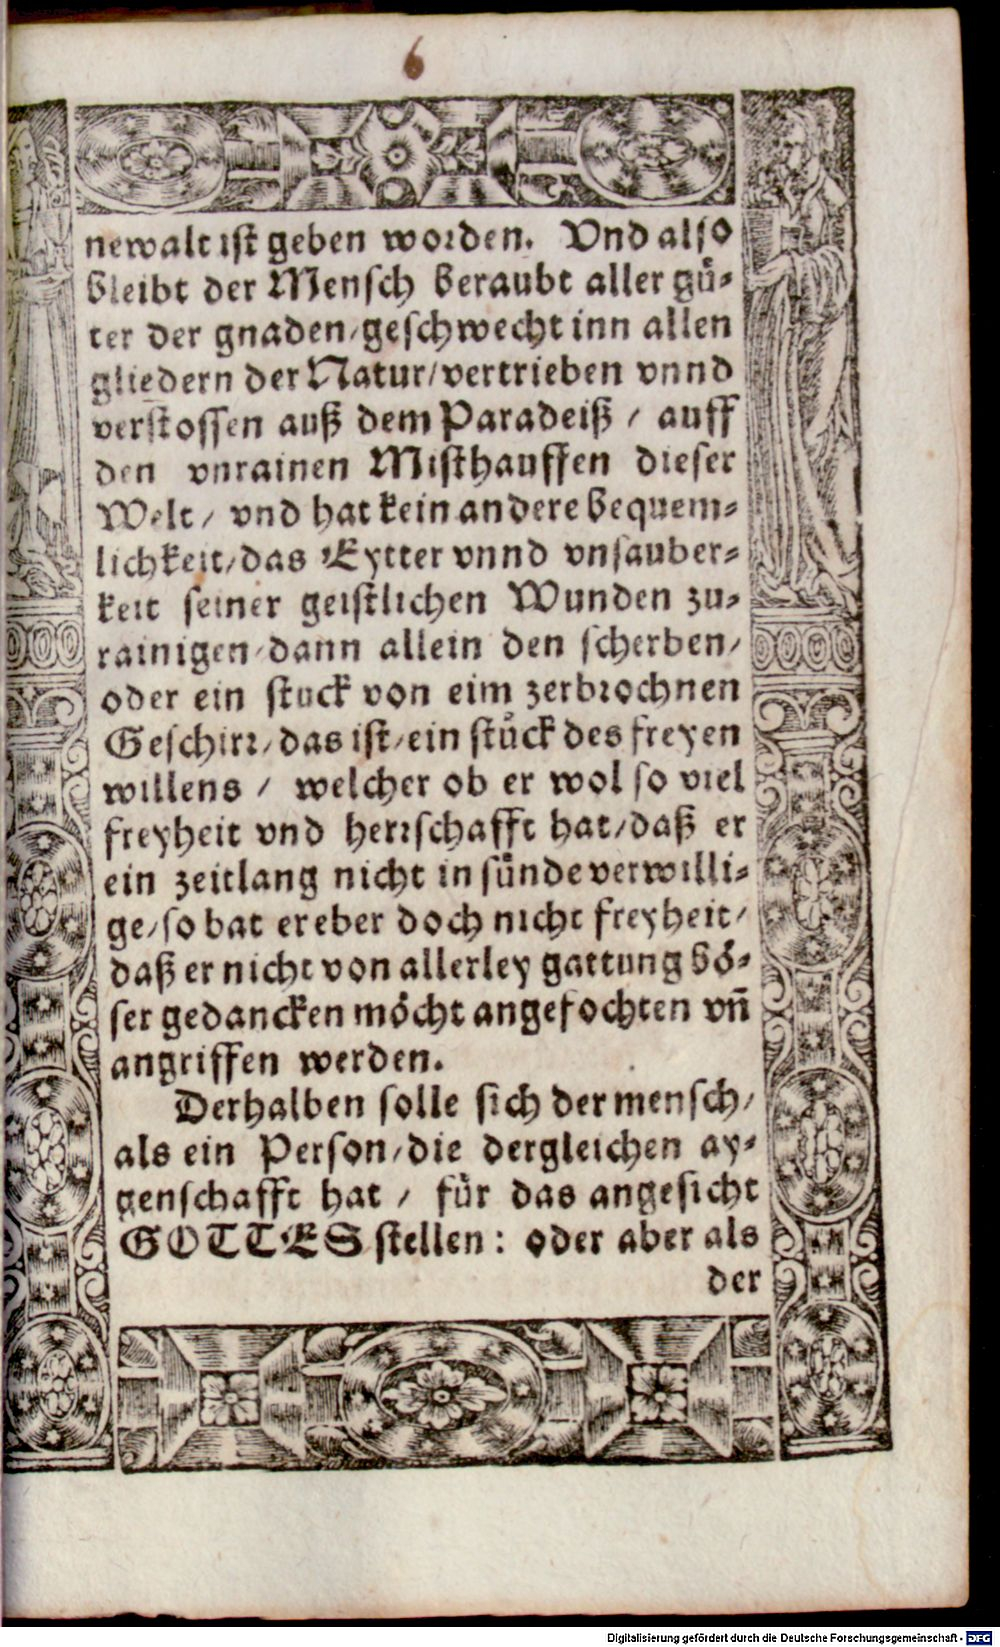 6
newalt ist geben worden. Vnd also
bleibt der Mensch beraubt aller gü-
ter der gnaden/geschwecht inn allen
gliedern der Natur/vertrieben vnnd
verstossen auß dem Paradeiß / auff
den vnrainen Misthauffen dieser
Welt / vnd hat kein andere bequem-
lichkeit/das Eytter vnnd vnsauber-
keit seiner geistlichen Wunden zu-
rainigen/dann allein den scherben/
oder ein stuck von eim zerbrochnen
Geschirr/das ist/ein stück des freyen
willens / welcher ob er wol so viel
freyheit vnd herrschafft hat/daß er
ein zeitlang nicht in sünde verwilli-
ge/so hat er eber doch nicht freyheit/
daß er nicht von allerley gattung bö-
ser gedancken möcht angefochten vñ
angriffen werden.
Derhalben solle sich der mensch/
als ein Person/die dergleichen ay-
genschafft hat / für das angesicht
GOTTES stellen : oder aber als
der
Digitalisierung gefördert durch die Deutsche Forschungsgemeinschaft - DFG